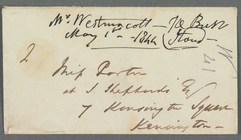 Mr. Westmacott — Jr Bust
May 1st 1844 (Stone)
2
Miss Porter
at J. Shepherds Esq
7 Kensington Square
Kensington —